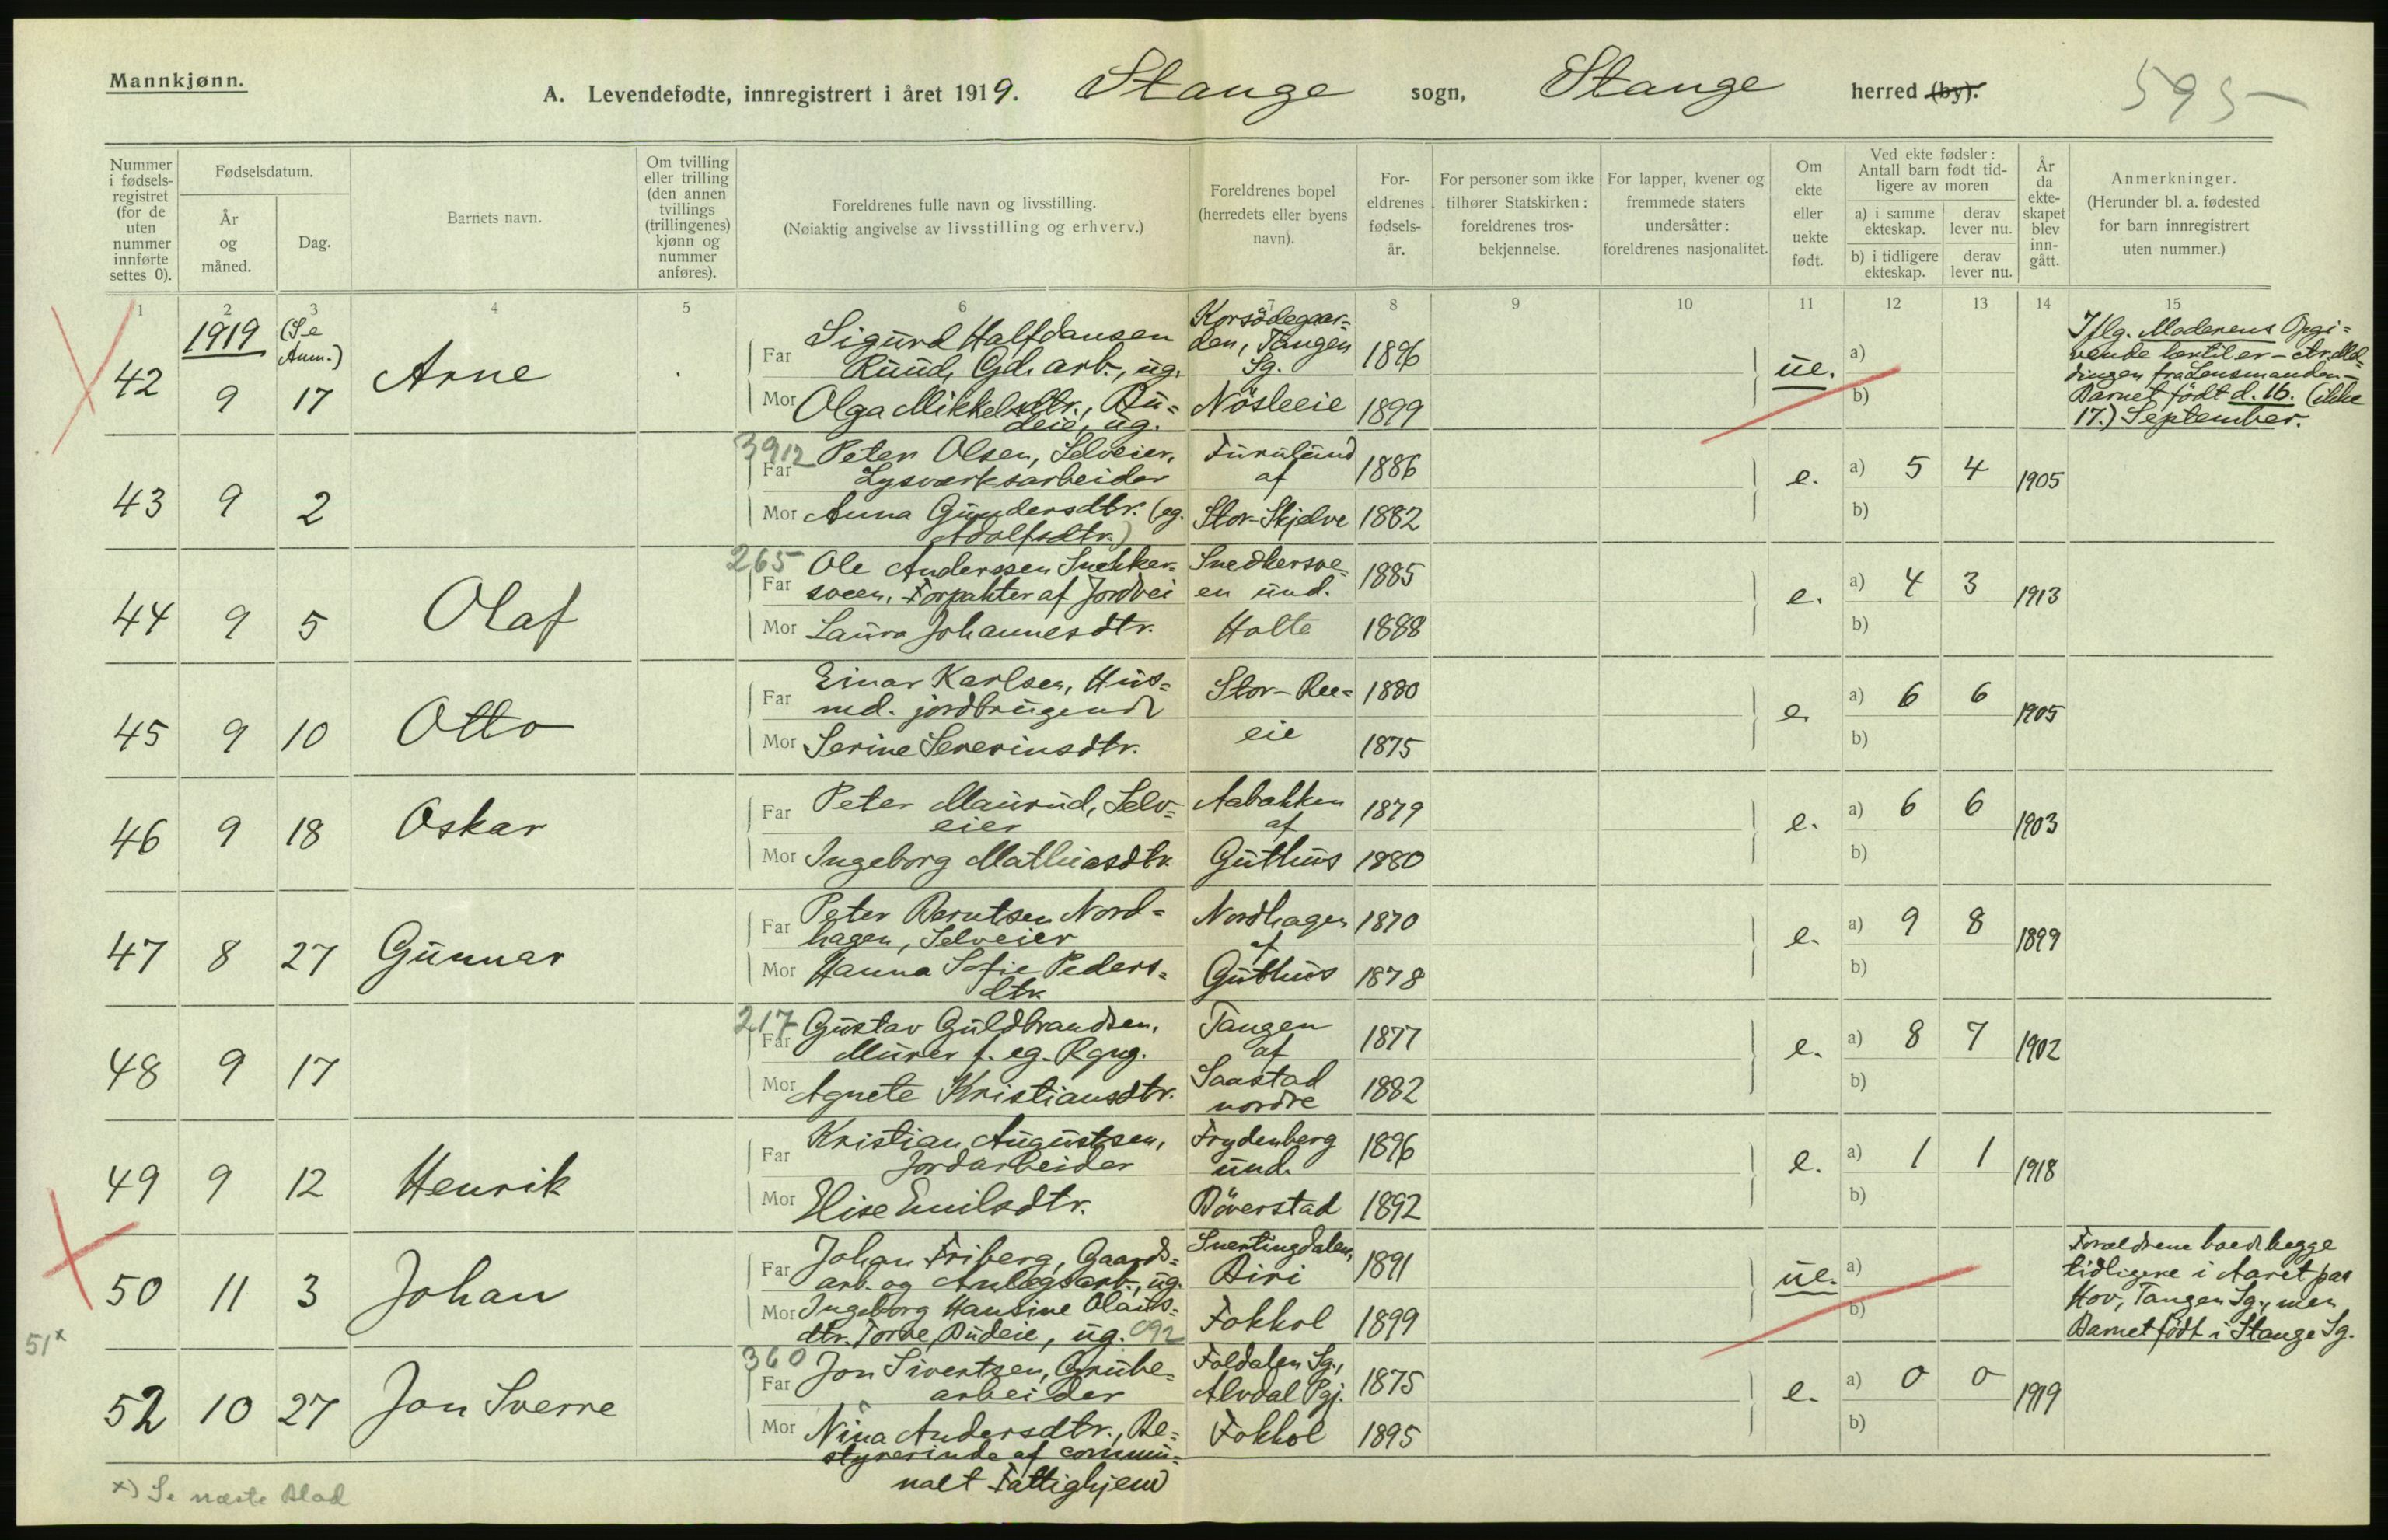 Mannkjønn.
A. Levendefødte, innregistrert i året 1919. Stange sogn, Stange herred (by).
595
Nummer i fødsels-registret (for de uten nummer innførte settes 0).
Fødselsdatum.
År og måned.
Dag.
Barnets navn.
Om tvilling eller trilling (den annen tvillings (trillingenes) kjønn og nummer anføres).
Foreldrenes fulle navn og livsstilling.
(Nøiaktig angivelse av livsstilling og erhverv.)
Foreldrenes bopel (herredets eller byens navn).
For-eldrenes fødsels-år.
For personer som ikke tilhører Statskirken: foreldrenes tros-bekjennelse.
For lapper, kvener og fremmede staters undersåtter: foreldrenes nasjonalitet.
Om ekte eller uekte født.
Ved ekte fødsler: Antall barn født tid-ligere av moren
a) i samme ekteskap.
derav lever nu.
b) i tidligere ekteskap.
derav lever nu.
År da ekte-skapet blev inn-gått.
Anmerkninger.
(Herunder bl. a. fødested for barn innregistrert uten nummer.)
1 2 3 4 5 6 7 8 9 10 11 12 13 14 15
1919 (Se Anm.)
42 9 17 Arne
Far Sigurd Halfdansen
Ruud, Gd. arb., ug.
Korsödegaar=
den, Tangen
Sg.
1896
Mor Olga Mikkelsdtr., Bu=
deie, ug.
Nösleeie 1899
ue. a) b)
Iflg. Moderens Opgi=
vende hertil er
dingen fra Lensmanden -
Barnet født d. 16. (ikke
17.) September.
3912
43 9 2
Far Peter Olsen, Selveier,
Lysværksarbeider
Furulund
af
1886
Mor Anna Gundersdtr. (eg.
Adolfsdtr.)
Stor-Skjelve 1882
e. a) 5 4 1905
b)
265
44 9 5 Olaf
Far Ole Anderssen Snekker-
sveen, Forpakter af Jordvei
Snedkersve-
en und.
1885
Mor Laura Johannesdtr. Holte 1888
e. a) 4 3 1913
b)
45 9 10 Otto
Far Einar Karlsen, Hus=
md. jordbrugende
Stor-Ree= 1880
Mor Serine Severinsdtr. eie 1875
e. a) 6 6 1905
b)
46 9 18 Oskar
Far Peter Maurud, Selv=
eier
Aabakken
af
1879
Mor Ingeborg Mathiasdtr. Guthus 1880
e. a) 6 6 1903
b)
47 8 27 Gunnar
Far Peter Berntsen Nord=
hagen, Selveier
Nordhagen
af
1870
Mor Hanna Sofie Peders=
dtr.
Guthus 1878
e. a) 9 8 1899
b)
217
48 9 17
Far Gustav Guldbrandsen,
Murer f. eg. Rgng.
Tangen
af
1877
Mor Agnete Kristiansdtr.
Saastad
nordre
1882
e. a) 8 7 1902
b)
49 9 12 Henrik
Far Kristian Augustsen,
Jordarbeider
Frydenberg
und.
1896
Mor Elise Emilsdtr. Böverstad 1892
e. a) 1 1 1918
b)
50 11 3 Johan
Far Johan Friberg, Gaards=
arb. og Anlægsarb., ug.
Snertingdalen,
Biri
1891
Mor Ingeborg Hansine Olaus=
dtr. Torve, Budeie, ug. 092
Fokhol 1899
ue. a) b)
Forældrene boed begge
tidligere i Aaret paa
Hov, Tangen Sg., men
Barnet født i Stange Sg.
51x
360
52 10 27 Jon Sverre
Far Jon Sivertsen, Grube=
arbeider
Foldalen Sg.,
Alvdal Pgj.
1875
Mor Nina Andersdtr., Be=
styrerinde af commu=
nalt Fattighjem
Fokhol 1895
e. a) 0 0 1919
b)
x) Se næste Blad